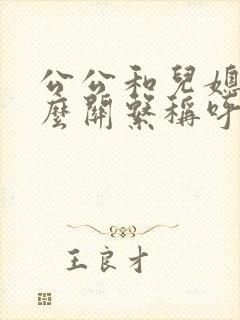 公公和兒媳
麼關繫稱呼
王良才